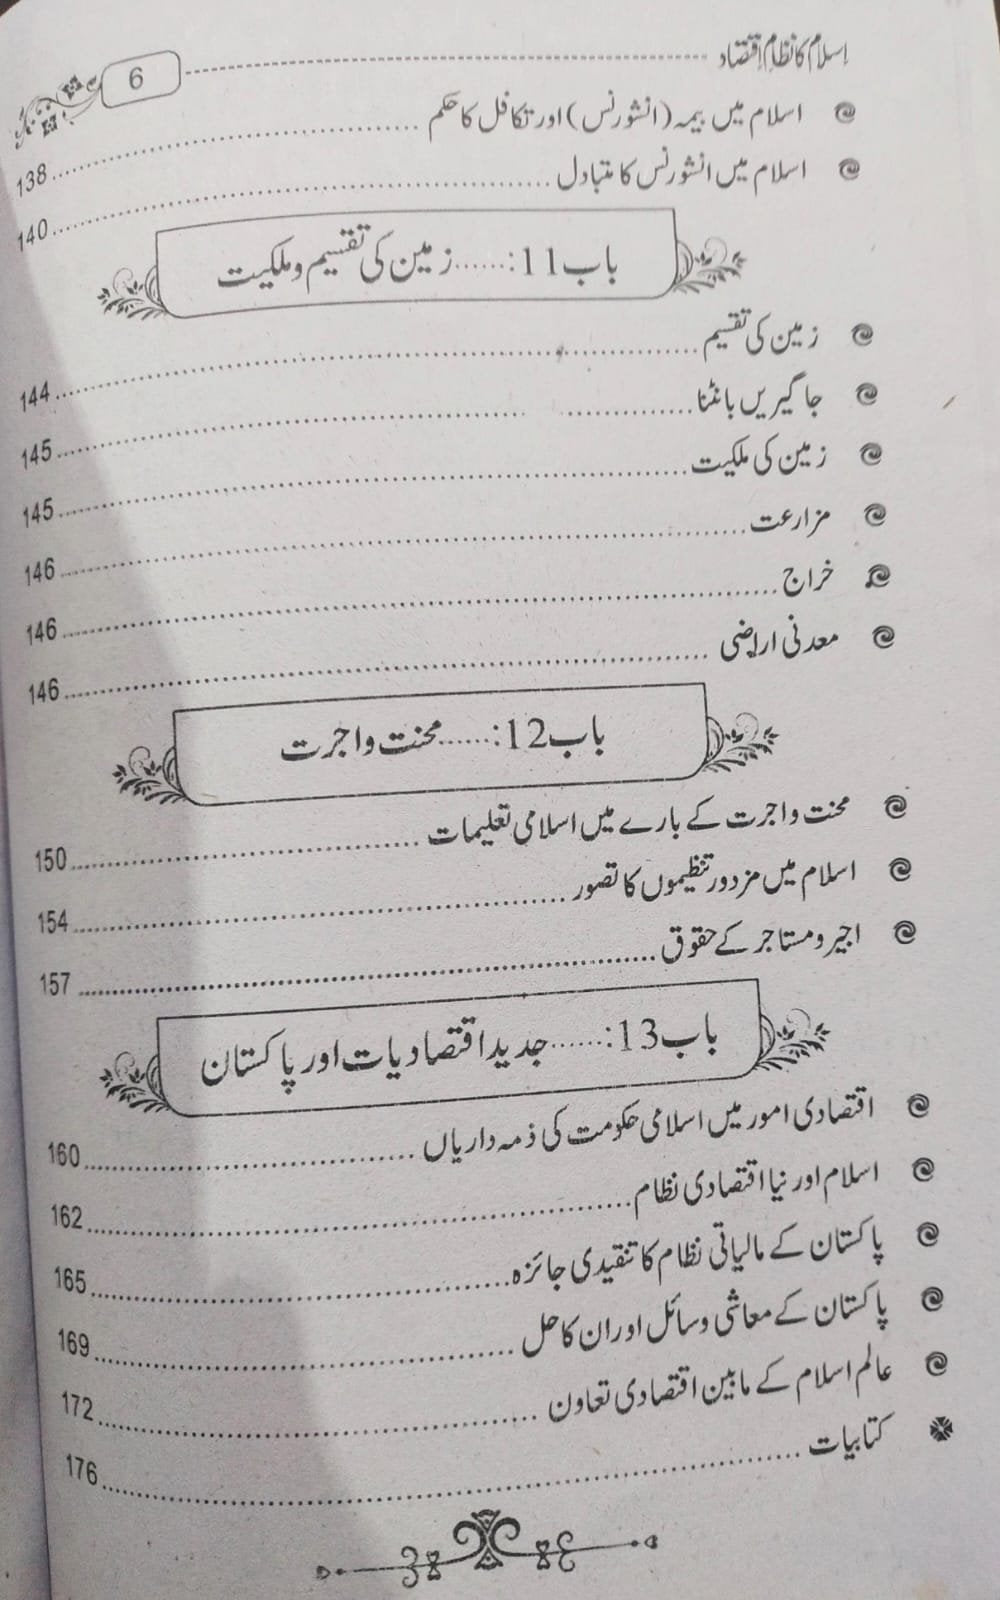 اسلام کا نظامِ اقتصاد 6
اسلام میں بیمہ (انشورنس) اور تکافل کا حکم 138
اسلام میں انشورنس کا متبادل 140
باب 11: ...... زمین کی تقسیم و ملکیت
زمین کی تقسیم 144
جاگیریں بانٹنا 145
زمین کی ملکیت 145
مزارعت 146
خراج 146
معدنی اراضی 146
باب 12: ...... محنت و اجرت
محنت و اجرت کے بارے میں اسلامی تعلیمات 150
اسلام میں مزدور تنظیموں کا تصور 154
اجیر و مستاجر کے حقوق 157
باب 13: ...... جدید اقتصادیات اور پاکستان
اقتصادی امور میں اسلامی حکومت کی ذمہ داریاں 160
اسلام اور نیا اقتصادی نظام 162
پاکستان کے مالیاتی نظام کا تنقیدی جائزہ 165
پاکستان کے معاشی وسائل اور ان کا حل 169
عالم اسلام کے مابین اقتصادی تعاون 172
کتابیات 176